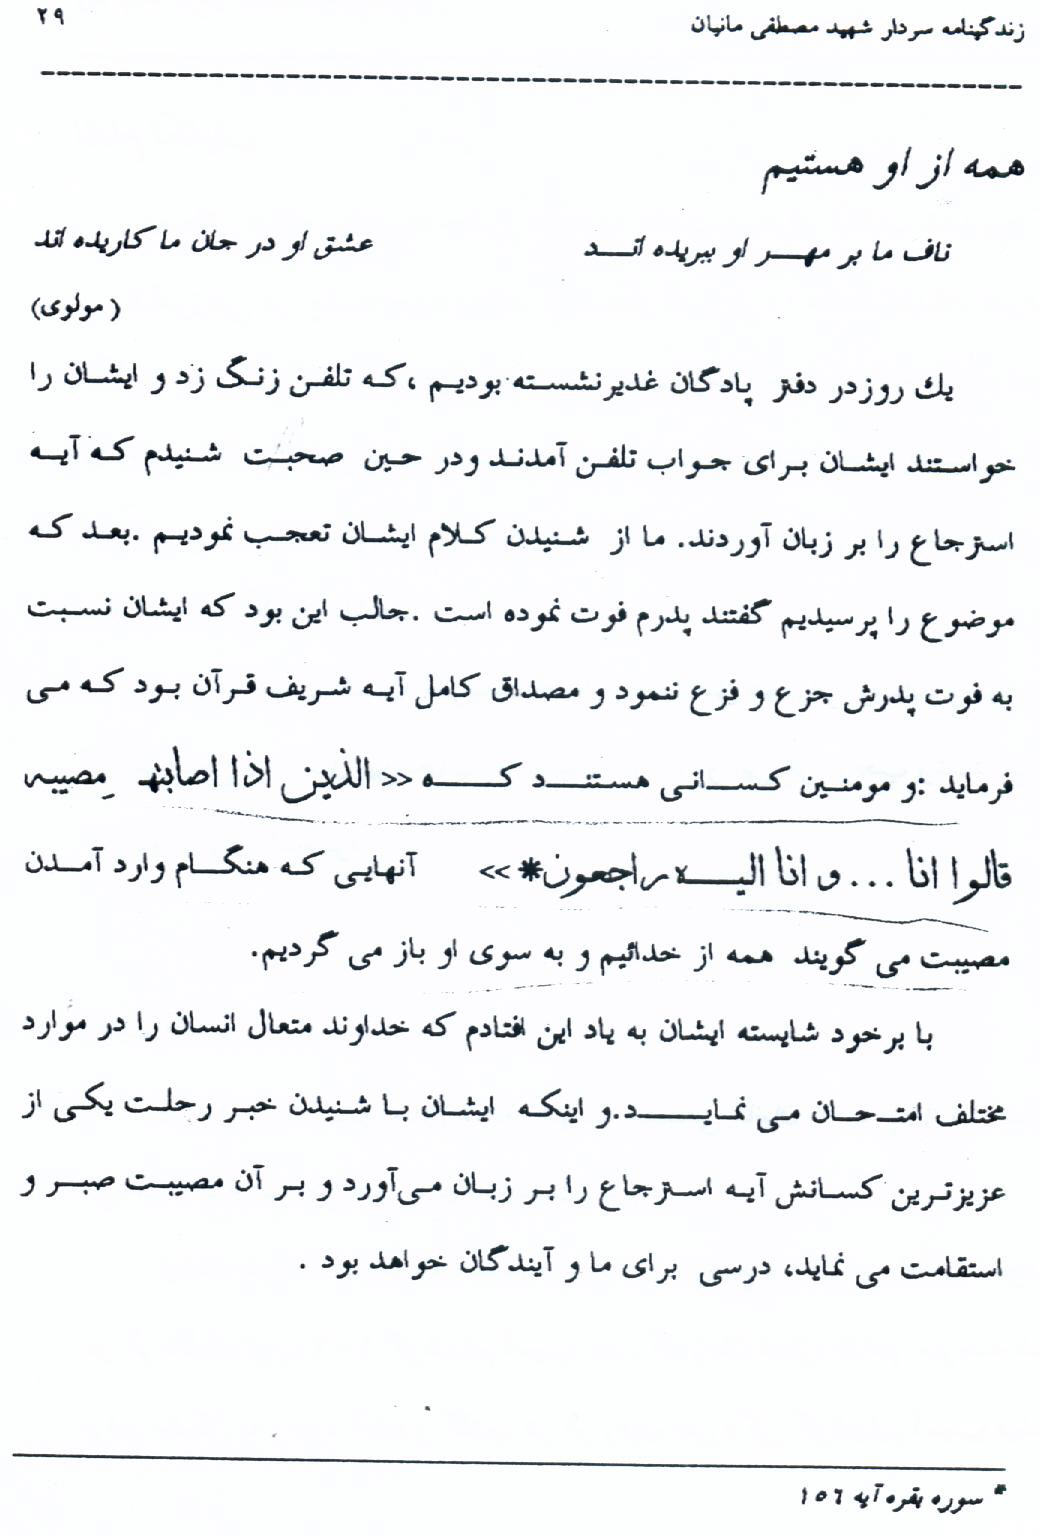 زندگینامه سردار شهید مصطفی مانیان
۲۹
همه از او هستیم
ناف ما بر مهر او ببریده اند    عشق او در جان ما کاریده اند
(مولوی)
یك روزدر دفتر پادگان غدیرنشسته بودیم ،که تلفن زنگ زد و ایشان را
خواستند ایشان برای جواب تلفن آمدند ودر حین صحبت شنیدم که آیه
استرجاع را بر زبان آوردند. ما از شنیدن کلام ایشان تعجب نمودیم .بعد که
موضوع را پرسیدیم گفتند پدرم فوت نموده است .جالب این بود که ایشان نسبت
به فوت پدرش جزع و فزع ننمود و مصداق کامل آیه شریف قرآن بود که می
فرماید :و مومنین کسانی هستند که << الذین اذا اصابتهم مصیبه
قالوا انا ... و انا الیه راجعون* >> آنهایی که هنگام وارد آمدن
مصیبت می گویند همه از خدائیم و به سوی او باز می گردیم.
با برخود شایسته ایشان به یاد این افتادم که خداوند متعال انسان را در موارد
مختلف امتحان می نماید.و اینکه ایشان با شنیدن خبر رحلت یکی از
عزیزترین کسانش آیه استرجاع را بر زبان می‌آورد و بر آن مصیبت صبر و
استقامت می نماید، درسی برای ما و آیندگان خواهد بود .
* سوره بقره آیه ۱۵۶